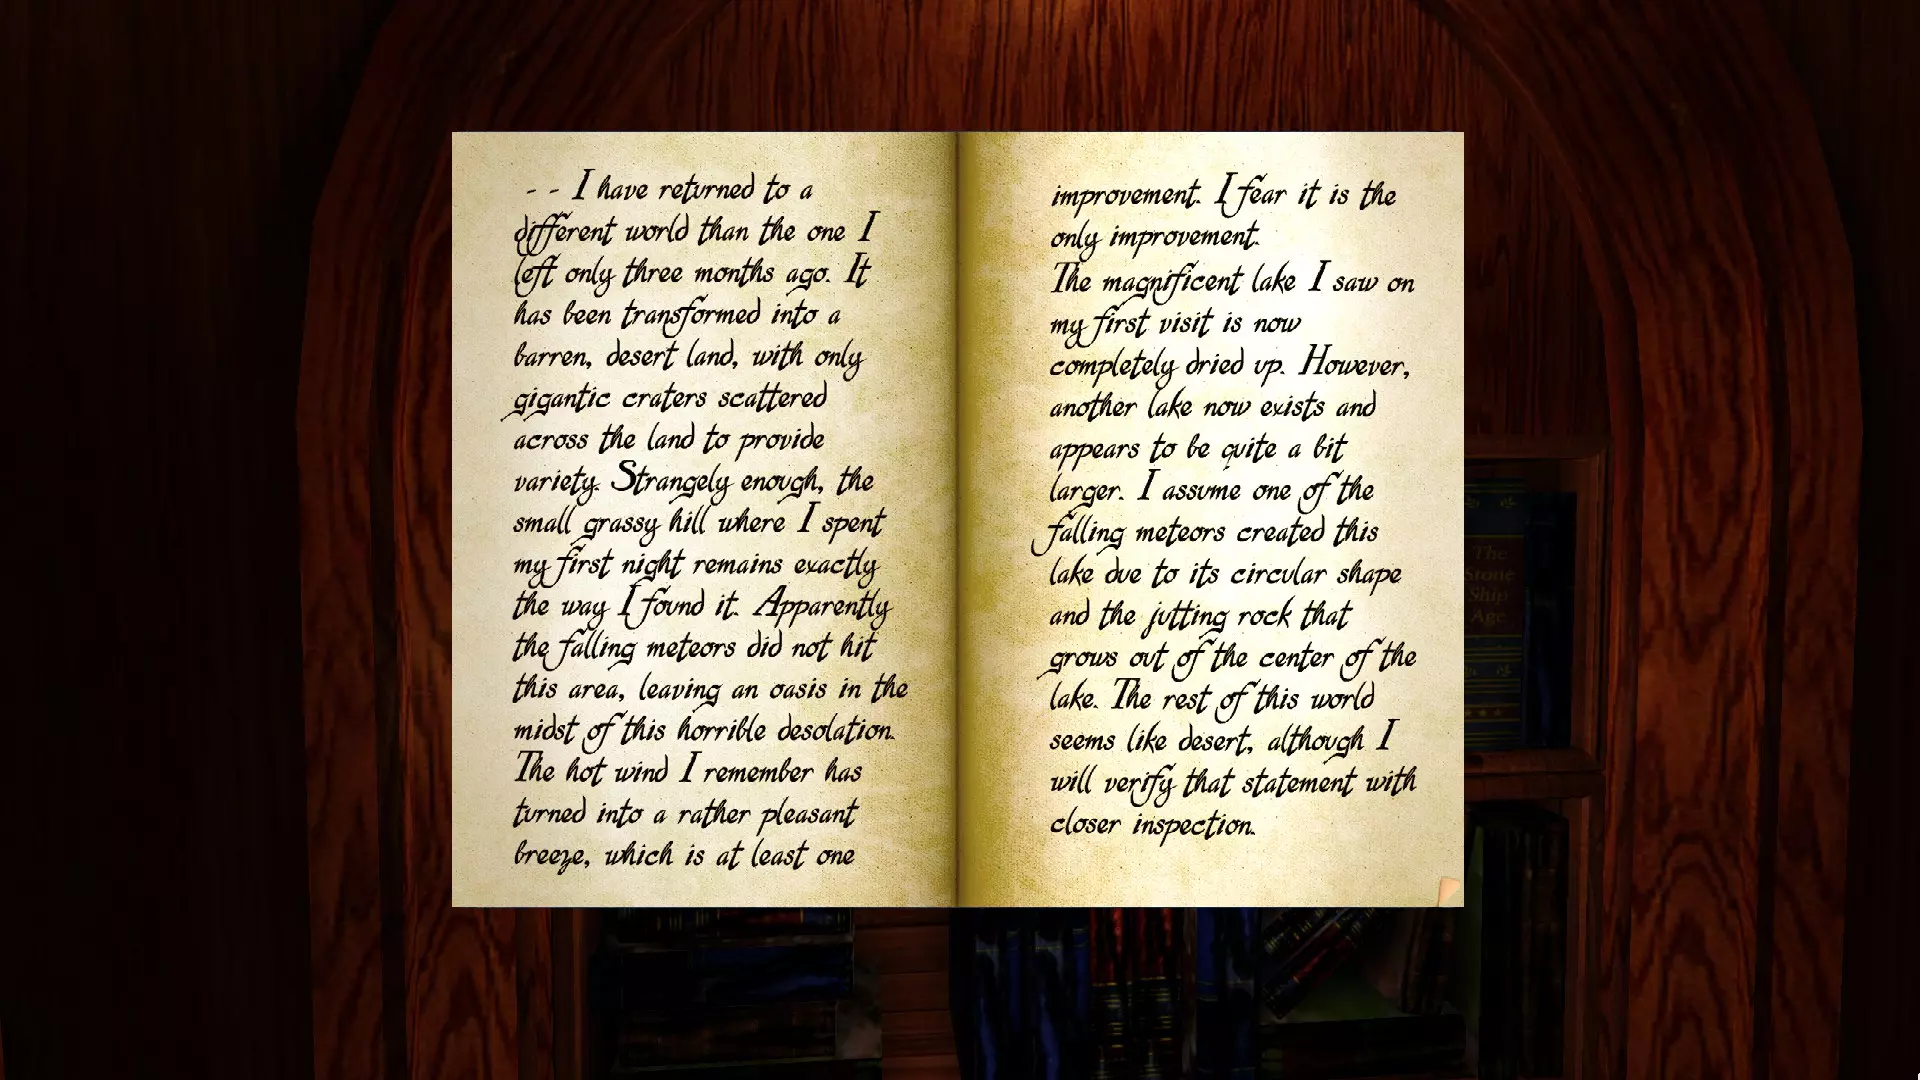 - - I have returned to a
different world than the one I
left only three months ago. It
has been transformed into a
barren, desert land, with only
gigantic craters scattered
across the land to provide
variety. Strangely enough, the
small grassy hill where I spent
my first night remains exactly
the way I found it. Apparently
the falling meteors did not hit
this area, leaving an oasis in the
midst of this horrible desolation.
The hot wind I remember has
turned into a rather pleasant
breeze, which is at least one
improvement. I fear it is the
only improvement.
The magnificent lake I saw on
my first visit is now
completely dried up. However,
another lake now exists and
appears to be quite a bit
larger. I assume one of the
falling meteors created this
lake due to its circular shape
and the jutting rock that
grows out of the center of the
lake. The rest of this world
seems like desert, although I
will verify that statement with
closer inspection.
The
Stone
Ship
Age